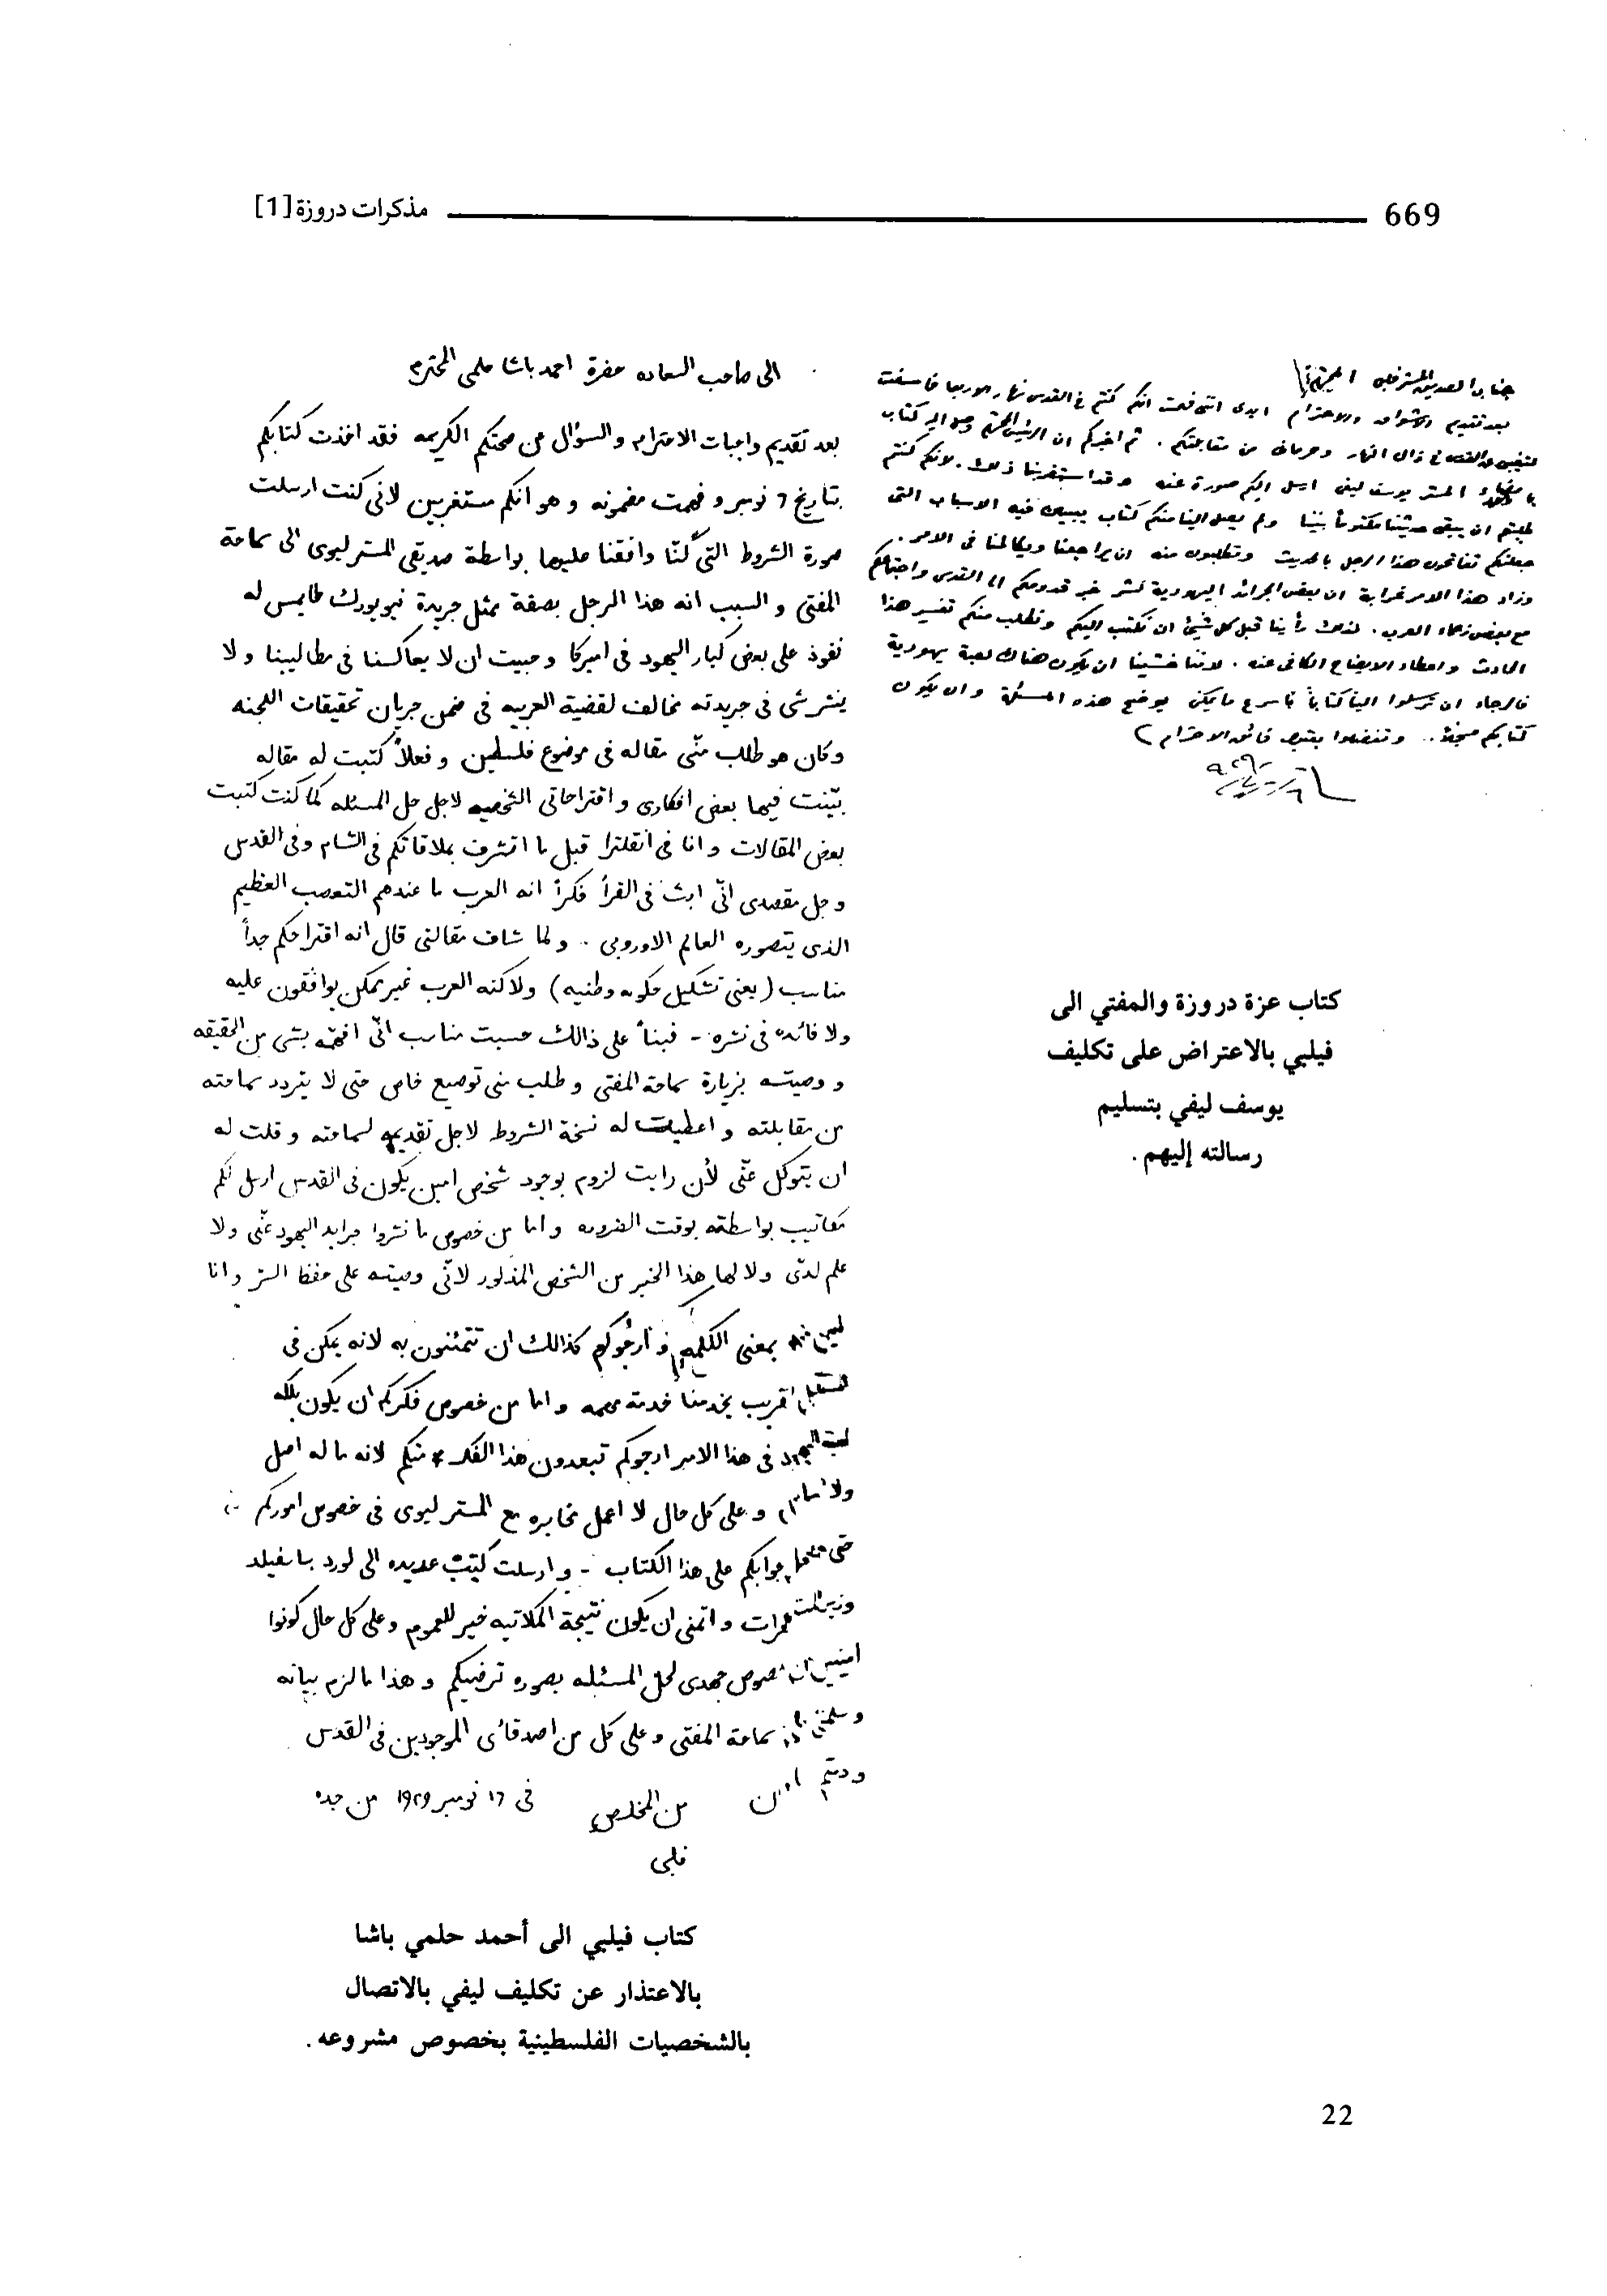 669
مذكرات دروزة [1]
جناب الصديق المستر فلبي المحترم
بعد تقديم الاشواق والاحترام ابدى انني فهمت انكم كنتم في القدس نهار الاربعا فاسفت
لتغيبي عن القدس في ذلك النهار وحرماني من مقابلتكم . ثم اخبركم ان الرئيس المحترم وصل اليه كتاب
المستر يوسف ليفي ارسل اليكم صورة عنه وقد استغربنا ذلك . لانكم كنتم
طلبتم ان يبقى حديثنا مكتوماً بيننا ولم يصل الينا منكم كتاب يبين فيه الاسباب التي
جعلتكم تفاتحون هذا الرجل بالحديث وتطلبون منه ان يراجعنا ويكالمنا في الامر .
وزاد هذا الامر غرابة ان بعض الجرائد اليهودية نشر خبر قدومكم الى القدس واجتماعكم
مع بعض زعماء العرب . لذلك رأينا قبل كل شيئ ان نكتب اليكم ونطلب منكم تفسير هذا
الحادث واعطاء الايضاح الكافي عنه . لاننا خشينا ان يكون هناك لعبة يهودية
فالرجاء ان ترسلوا الينا كتاباً باسرع ما يمكن يوضح هذه المسئلة وان يكون
كتابكم .. وتفضلوا بقبول فائق الاحترام
كتاب عزة دروزة والمفتي الى
فيلبي بالاعتراض على تكليف
يوسف ليفي بتسليم
رسالته إليهم .
الى صاحب السعاده حضرة احمد باشا حلمى المحترم
بعد تقديم واجبات الاحترام والسؤال عن صحتكم الكريمه فقد اخذت كتابكم
بتاريخ ٦ نومبر وفهمت مضمونه وهو انكم مستغربين لانى كنت ارسلت
صورة الشروط التى كنّا وافقنا عليها بواسطة صديقى المستر ليوى الى سماحة
المفتى والسبب انه هذا الرجل بصفة ممثل جريدة نيويورك طايمس له
نفوذ على بعض كبار اليهود فى اميركا وحبيت ان لا يعاكسنا فى مطاليبنا ولا
ينشر شى فى جريدته مخالف لقضية العربيه فى ضمن جريان تحقيقات اللجنه
وكان هو طلب منّى مقاله فى موضوع فلسطين وفعلاً كتبت له مقاله
بيّنت فيها بعض افكارى واقتراحاتى الشخصيه لاجل حل المسئله كما كنت كتبت
بعض المقالات وانا فى انقلترا قبل ما اتشرف بملاقاتكم فى الشام وفى القدس
وجل مقصدى انّى ابث فى القرأ فكراً انه العرب ما عندهم التعصب العظيم
الذى يتصوره العالم الاوروبى .. ولما شاف مقالتى قال انه اقتراحكم جداً
مناسب (يعنى تشكيل حكومه وطنيه) ولاكنه العرب غير ممكن يوافقون عليه
ولا فائده فى نشره - فبنأ على ذالك حسبت مناسب انّى افهمه بشى من الحقيقه
و وصيته بزيارة سماحة المفتى وطلب منى توصيع خاص حتى لا يتردد سماحته
من مقابلته واعطيت له نسخة الشروط لاجل تقديمه لسماحته وقلت له
ان يتوكل عنّى لأن رايت لزوم بوجود شخص امين يكون فى القدس ارسل لكم
مكاتيب بواسطته بوقت الضروره واما من خصوص ما نشروا جرايد اليهود عنّى ولا
علم لدى ولا لها هذا الخبر من الشخص المذكور لانّى وصيته على حفظ السر وانا
بمعنى الكلمه وارجوكم كذالك ان تتمئنون به لانه يمكن فى
قريب يخدمنا خدمة مهمه واما من خصوص فكركم ان يكون
فى هذا الامر ارجوكم تبعدون هذا الفكر منكم لانه ما له اصل
وعلى كل حال لا اعمل مخابره مع المستر ليوى فى خصوص اموركم
حتى جوابكم على هذا الكتاب - وارسلت كتب عديده الى لورد باسفيلد
واتمنى ان يكون نتيجة المكاتبه خير للعموم وعلى كل حال كونوا
امينين جهدى لحل المسئله بصوره ترضيكم وهذا ما لزم بيانه
سماحة المفتى وعلى كل من اصدقائى الموجودين فى القدس
ودمتم
من المخلص فى ١٦ نومبر ١٩٢٩ من جده
فلبى
كتاب فيلبي الى أحمد حلمي باشا
بالاعتذار عن تكليف ليفي بالاتصال
بالشخصيات الفلسطينية بخصوص مشروعه .
22